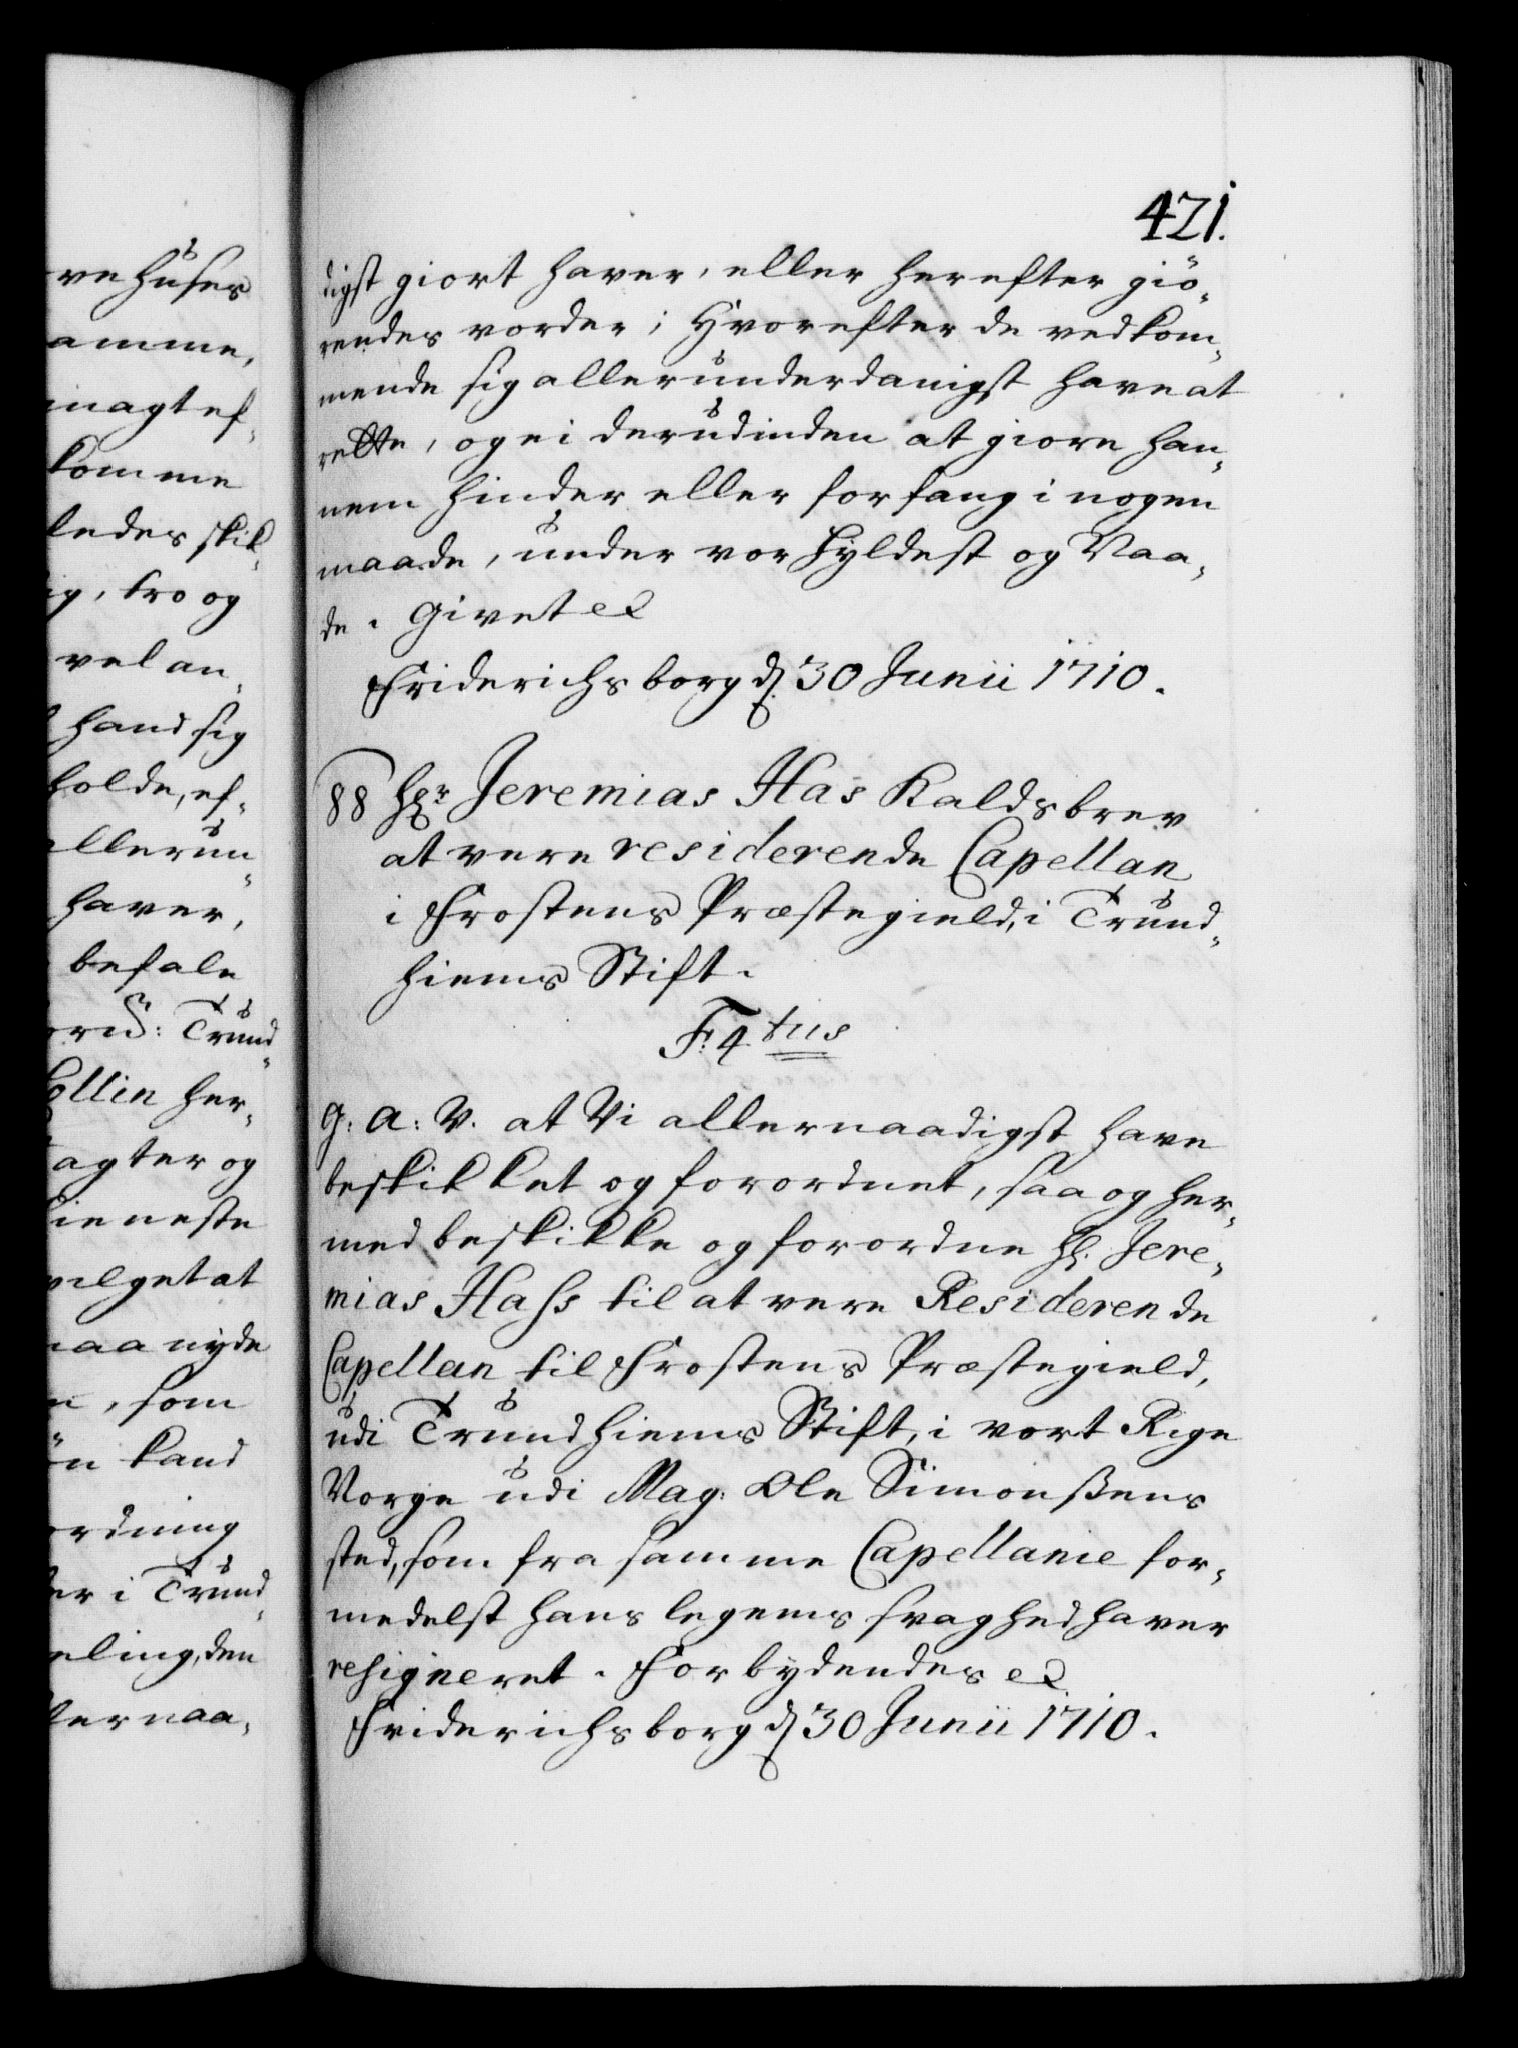 421.
digst giort haver, eller herefter giö-
rendes vorder; Hvorefter de vedkom-
mende sig allerunderdanigst have at
rette, og ei derudinden at giøre han-
nem hinder eller forfang i nogen
maade, under vor Hyldest og Naa-
de. Givet etc
Friderichsborg d 30 Junii 1710.
88 Hr Jeremias Has Kaldsbrev
at være residerende Capellan
i Frostens Præstegield, i Trund-
hiems Stift.
F: 4tus
G: A: V. at Vi allernaadigst have
beskikket og forordnet, saa og her-
med beskikke og forordne Hr. Jere-
mias Hass til at være Residerende
Capellan til Frostens Præstegield,
udi Trundhiems Stift, i vort Rige
Norge udi Mag: Ole Simonßens
sted, som fra samme Capellanie for-
medelst hans legems svaghed haver
resigneret. Forbydendes etc
Friderichsborg d 30 Junii 1710.
ve huses
amme,
magt ef-
komme
ledes skik-
ig, tro og
vel an-
hand sig
holde, ef-
allerun-
haver,
befale
Trund-
Collin her-
agter og
ieneste
vilget at
maa nyde
, som
ön kand
ordning
er i Trund-
eling, den
ler naa-